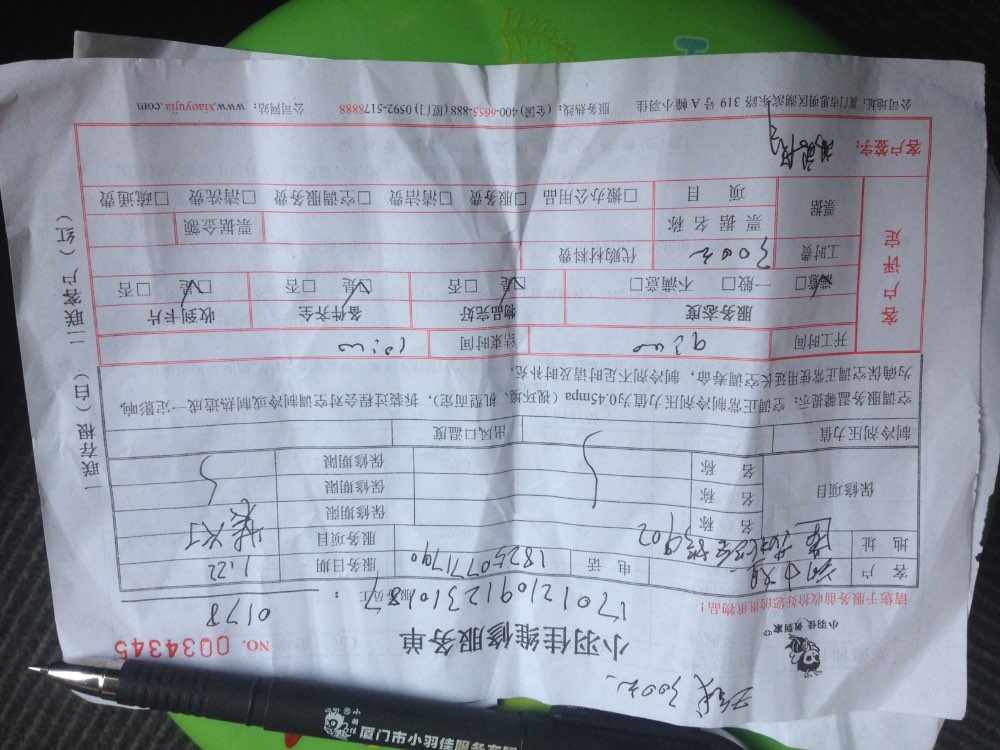 小羽佳 做到家
小羽佳维修服务单
NO. 0034345
300元
请您于服务前收拾好您的贵重物品！
170121091231018
服务员工：
0178
客户
电话 18250771790
服务日期 1.22
地址
902
服务项目 装灯
保修项目
名称
保修期限
名称
保修期限
名称
保修期限
制冷剂压力值
出风口温度
空调服务温馨提示：空调正常制冷剂压力值为0.45mpa（视环境、机型而定），拆装过程会对空调制冷或制热造成一定影响，
为确保空调正常使用延长空调寿命，制冷剂不足时请及时补充。
客户评定
开工时间 9:00
结束时间 10:00
服务态度
物品完好
备件齐全
收到卡片
满意□ 一般□ 不满意□
□是 □否
□是 □否
□是 □否
工时费 300元
代购材料费
票据
票据名称
票据金额
项目
□搬办公用品 □服务费 □清洁费 □空调服务费 □清洗费 □疏通费
客户签字：
公司地址：厦门市思明区湖滨东路319号A幢小羽佳
服务热线：(全国)400-6655-888 (厦门) 0592-5178888
公司网站：www.xiaoyujia.com
一联存根（白） 二联客户（红）
厦门市小羽佳服务有限